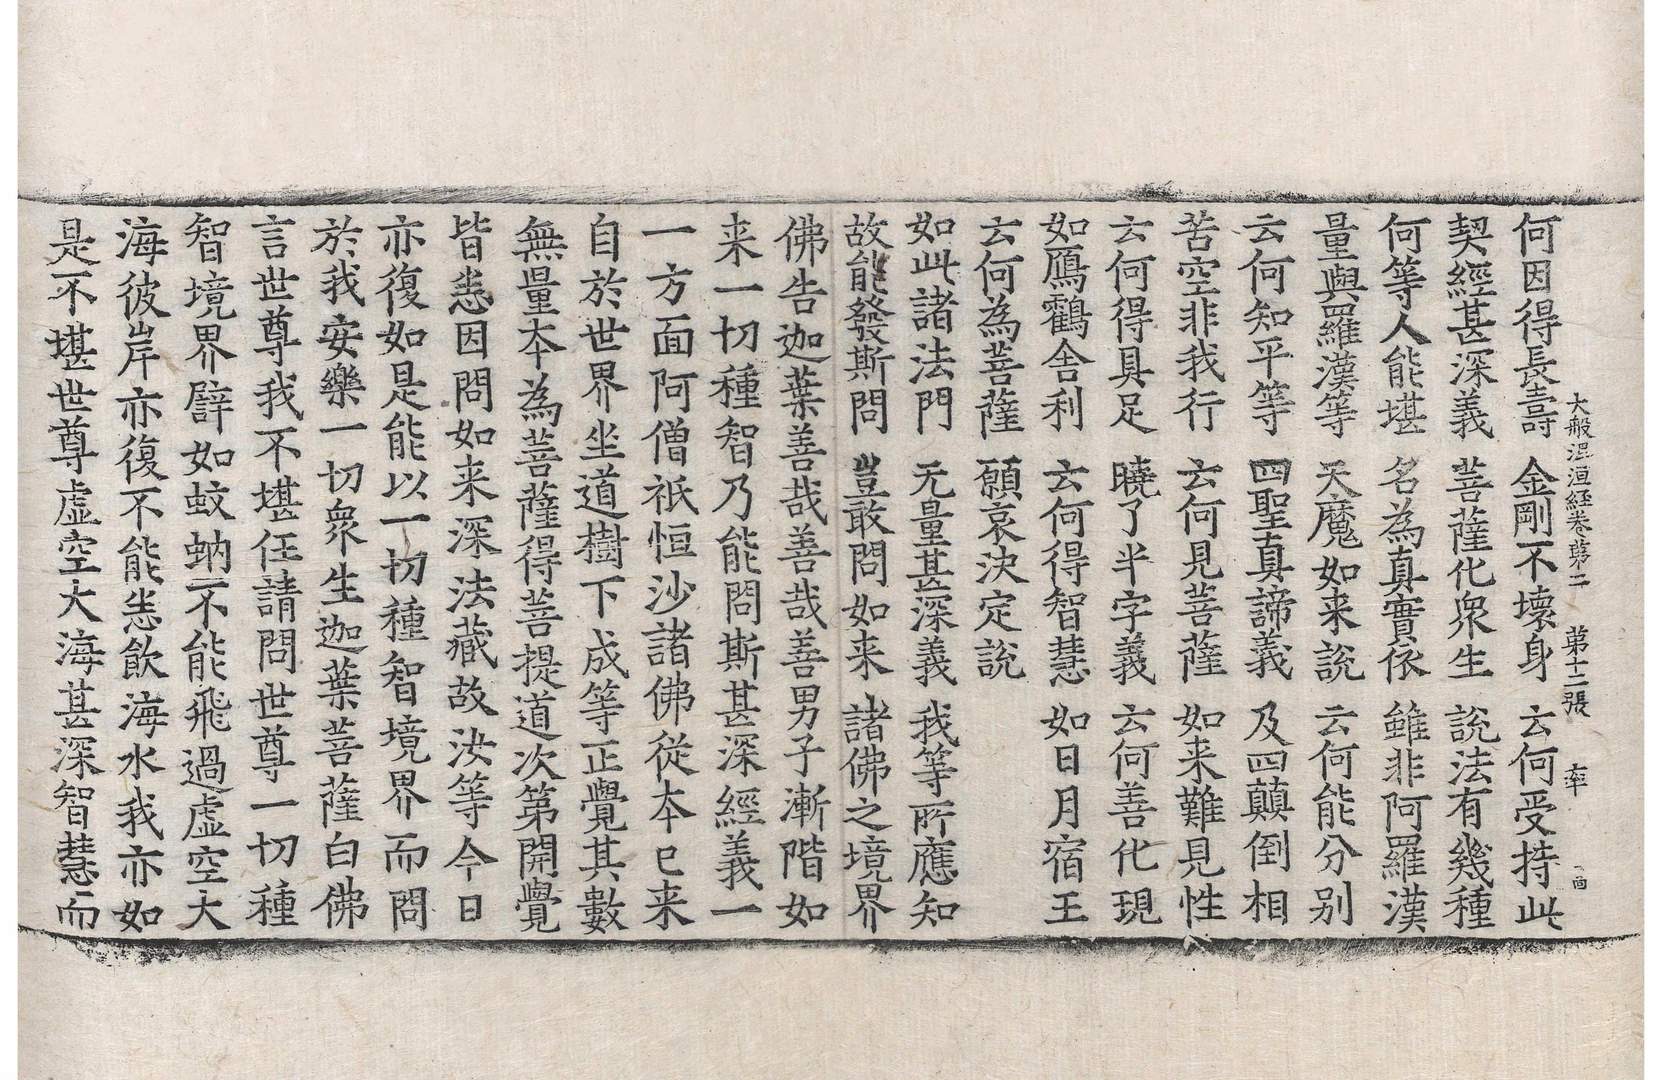 大般泥洹經卷第二 第十二張 率
何因得長壽 金剛不壞身 云何受持此
契經甚深義 菩薩化衆生 說法有幾種
何等人能堪 名為真實依 雖非阿羅漢
量與羅漢等 天魔如来說 云何能分別
云何知平等 四聖真諦義 及四顛倒相
苦空非我行 云何見菩薩 如来難見性
云何得具足 曉了半字義 云何善化現
如鴈鶴舍利 云何得智慧 如日月宿王
云何為菩薩 願哀決定說
如此諸法門 无量甚深義 我等所應知
故能發斯問 豈敢問如来 諸佛之境界
佛告迦葉善哉善哉善男子漸階如
来一切種智乃能問斯甚深經義一
一方面阿僧祇恒沙諸佛從本已来
自於世界坐道樹下成等正覺其數
無量本為菩薩得菩提道次第開覺
皆悉因問如来深法藏故汝等今日
亦復如是能以一切種智境界而問
於我安樂一切衆生迦葉菩薩白佛
言世尊我不堪任請問世尊一切種
智境界譬如蚊蚋不能飛過虛空大
海彼岸亦復不能悉飲海水我亦如
是不堪世尊虛空大海甚深智慧而